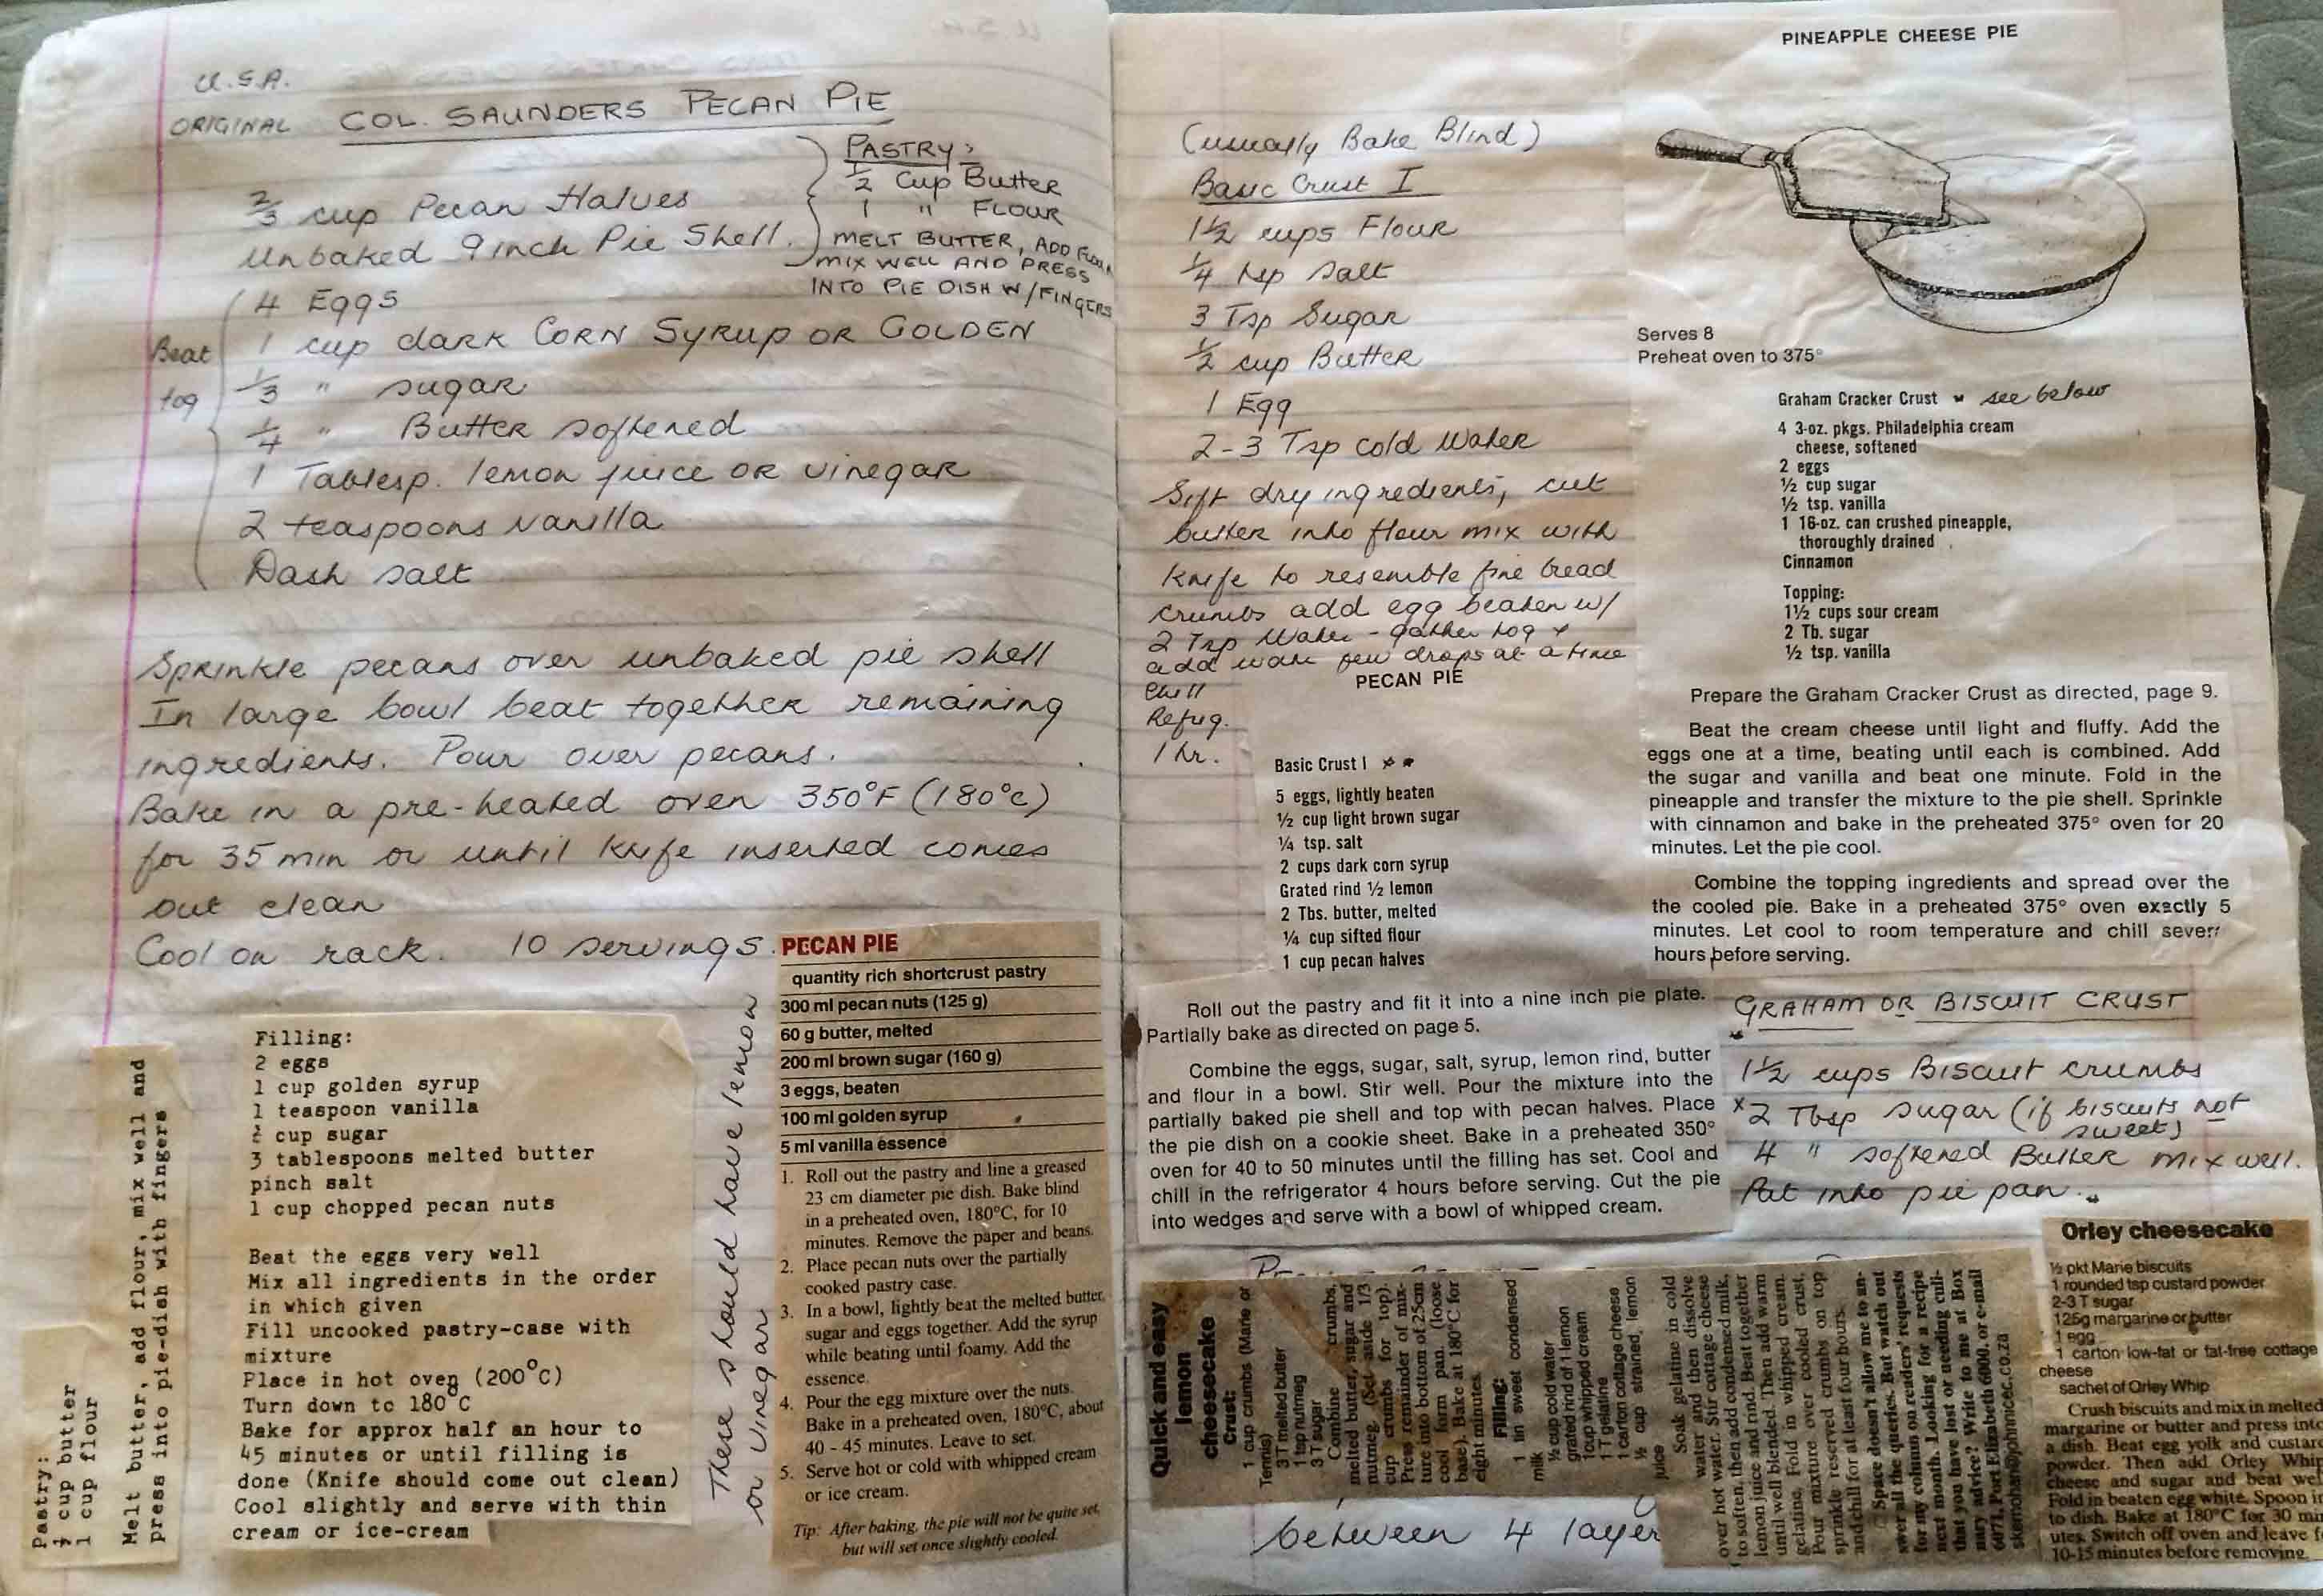 U.S.A.
ORIGINAL COL. SAUNDERS PECAN PIE
2/3 cup Pecan Halves
Unbaked 9inch Pie Shell.
PASTRY:
1/2 Cup Butter
1 " FLOUR
MELT BUTTER, ADD FLOUR
MIX WELL AND PRESS
INTO PIE DISH W/FINGERS
Beat
tog
4 Eggs
1 cup dark CORN SYRUP OR GOLDEN
1/3 " sugar
1/4 " Butter softened
1 Tablesp. lemon juice OR vinegar
2 teaspoons vanilla
Dash salt
Sprinkle pecans over unbaked pie shell
In large bowl beat together remaining
ingredients. Pour over pecans.
Bake in a pre-heated oven 350°F (180°c)
for 35 min or until knife inserted comes
out clean
Cool on rack. 10 servings.
Pastry:
cup butter
1 cup flour
Melt butter, add flour, mix well and
press into pie-dish with fingers
Filling:
2 eggs
1 cup golden syrup
1 teaspoon vanilla
cup sugar
3 tablespoons melted butter
pinch salt
1 cup chopped pecan nuts
Beat the eggs very well
Mix all ingredients in the order
in which given
Fill uncooked pastry-case with
mixture
Place in hot oven (200°C)
Turn down to 180°C
Bake for approx half an hour to
45 minutes or until filling is
done (Knife should come out clean)
Cool slightly and serve with thin
cream or ice-cream
These should have lemon
or vinegar
PECAN PIE
quantity rich shortcrust pastry
300 ml pecan nuts (125 g)
60 g butter, melted
200 ml brown sugar (160 g)
3 eggs, beaten
100 ml golden syrup
5 ml vanilla essence
1. Roll out the pastry and line a greased
23 cm diameter pie dish. Bake blind
in a preheated oven, 180°C, for 10
minutes. Remove the paper and beans.
2. Place pecan nuts over the partially
cooked pastry case.
3. In a bowl, lightly beat the melted butter,
sugar and eggs together. Add the syrup
while beating until foamy. Add the
essence.
4. Pour the egg mixture over the nuts.
Bake in a preheated oven, 180°C, about
40 - 45 minutes. Leave to set.
5. Serve hot or cold with whipped cream
or ice cream.
Tip: After baking, the pie will not be quite set,
but will set once slightly cooled.
(usually Bake Blind)
Basic Crust I
1½ cups Flour
¼ tsp salt
3 Tsp Sugar
½ cup Butter
1 Egg
2-3 Tsp cold Water
Sift dry ingredients, cut
butter into flour mix with
knife to resemble fine bread
crumbs add egg beaten w/
2 Tsp Water - gather tog +
add water few drops at a time
Chill
Refrig.
1 hr.
PECAN PIE
Basic Crust I
5 eggs, lightly beaten
½ cup light brown sugar
¼ tsp. salt
2 cups dark corn syrup
Grated rind ½ lemon
2 Tbs. butter, melted
¼ cup sifted flour
1 cup pecan halves
Roll out the pastry and fit it into a nine inch pie plate.
Partially bake as directed on page 5.
Combine the eggs, sugar, salt, syrup, lemon rind, butter
and flour in a bowl. Stir well. Pour the mixture into the
partially baked pie shell and top with pecan halves. Place
the pie dish on a cookie sheet. Bake in a preheated 350°
oven for 40 to 50 minutes until the filling has set. Cool and
chill in the refrigerator 4 hours before serving. Cut the pie
into wedges and serve with a bowl of whipped cream.
PINEAPPLE CHEESE PIE
Serves 8
Preheat oven to 375°
Graham Cracker Crust see below
4 3-oz. pkgs. Philadelphia cream
cheese, softened
2 eggs
½ cup sugar
½ tsp. vanilla
1 16-oz. can crushed pineapple,
thoroughly drained
Cinnamon
Topping:
1½ cups sour cream
2 Tb. sugar
½ tsp. vanilla
Prepare the Graham Cracker Crust as directed, page 9.
Beat the cream cheese until light and fluffy. Add the
eggs one at a time, beating until each is combined. Add
the sugar and vanilla and beat one minute. Fold in the
pineapple and transfer the mixture to the pie shell. Sprinkle
with cinnamon and bake in the preheated 375° oven for 20
minutes. Let the pie cool.
Combine the topping ingredients and spread over the
the cooled pie. Bake in a preheated 375° oven exactly 5
minutes. Let cool to room temperature and chill
hours before serving.
GRAHAM OR BISCUIT CRUST
1½ cups Biscuit crumbs
x 2 Tbsp sugar (if biscuits not
sweet)
4 " softened Butter mix well.
Put into pie pan.
Quick and easy
lemon
cheesecake
Crust:
1 cup crumbs (Marie or
Tennis)
3 T melted butter
1 tsp nutmeg
3 T sugar
Combine crumbs,
melted butter, sugar and
nutmeg. (Set aside 1/3
cup crumbs for top).
Press remainder of mix-
ture into bottom of 25cm
cool form pan. (loose
base). Bake at 180°C for
eight minutes.
Filling:
1 tin sweet condensed
milk
½ cup cold water
grated rind of 1 lemon
1cup whipped cream
1 T gelatine
1 carton cottage cheese
½ cup strained lemon
juice
Soak gelatine in cold
water and then dissolve
over hot water. Stir cottage cheese
to soften, then add condensed milk,
lemon juice and rind. Beat together
until well blended. Then add warm
gelatine. Fold in whipped cream.
Pour mixture over cooled crust,
sprinkle reserved crumbs on top
and chill for at least four hours.
Space doesn't allow me to an-
swer all the queries. But watch out
for my column on readers' requests
next month. Looking for a recipe
that you have lost or needing culi-
nary advice? Write to me at Box
6071, Port Elizabeth 6000. or e-mail
between 4 layer
Orley cheesecake
½ pkt Marie biscuits
1 rounded tsp custard powder
2-3 T sugar
125g margarine or butter
1 egg
1 carton low-fat or fat-free cottage
cheese
sachet of Orley Whip
Crush biscuits and mix in melted
margarine or butter and press into
a dish. Beat egg yolk and custard
powder. Then add Orley Whip
cheese and sugar and beat well
Fold in beaten egg white. Spoon in
to dish. Bake at 180°C for 30 min
utes. Switch off oven and leave
10-15 minutes before removing.